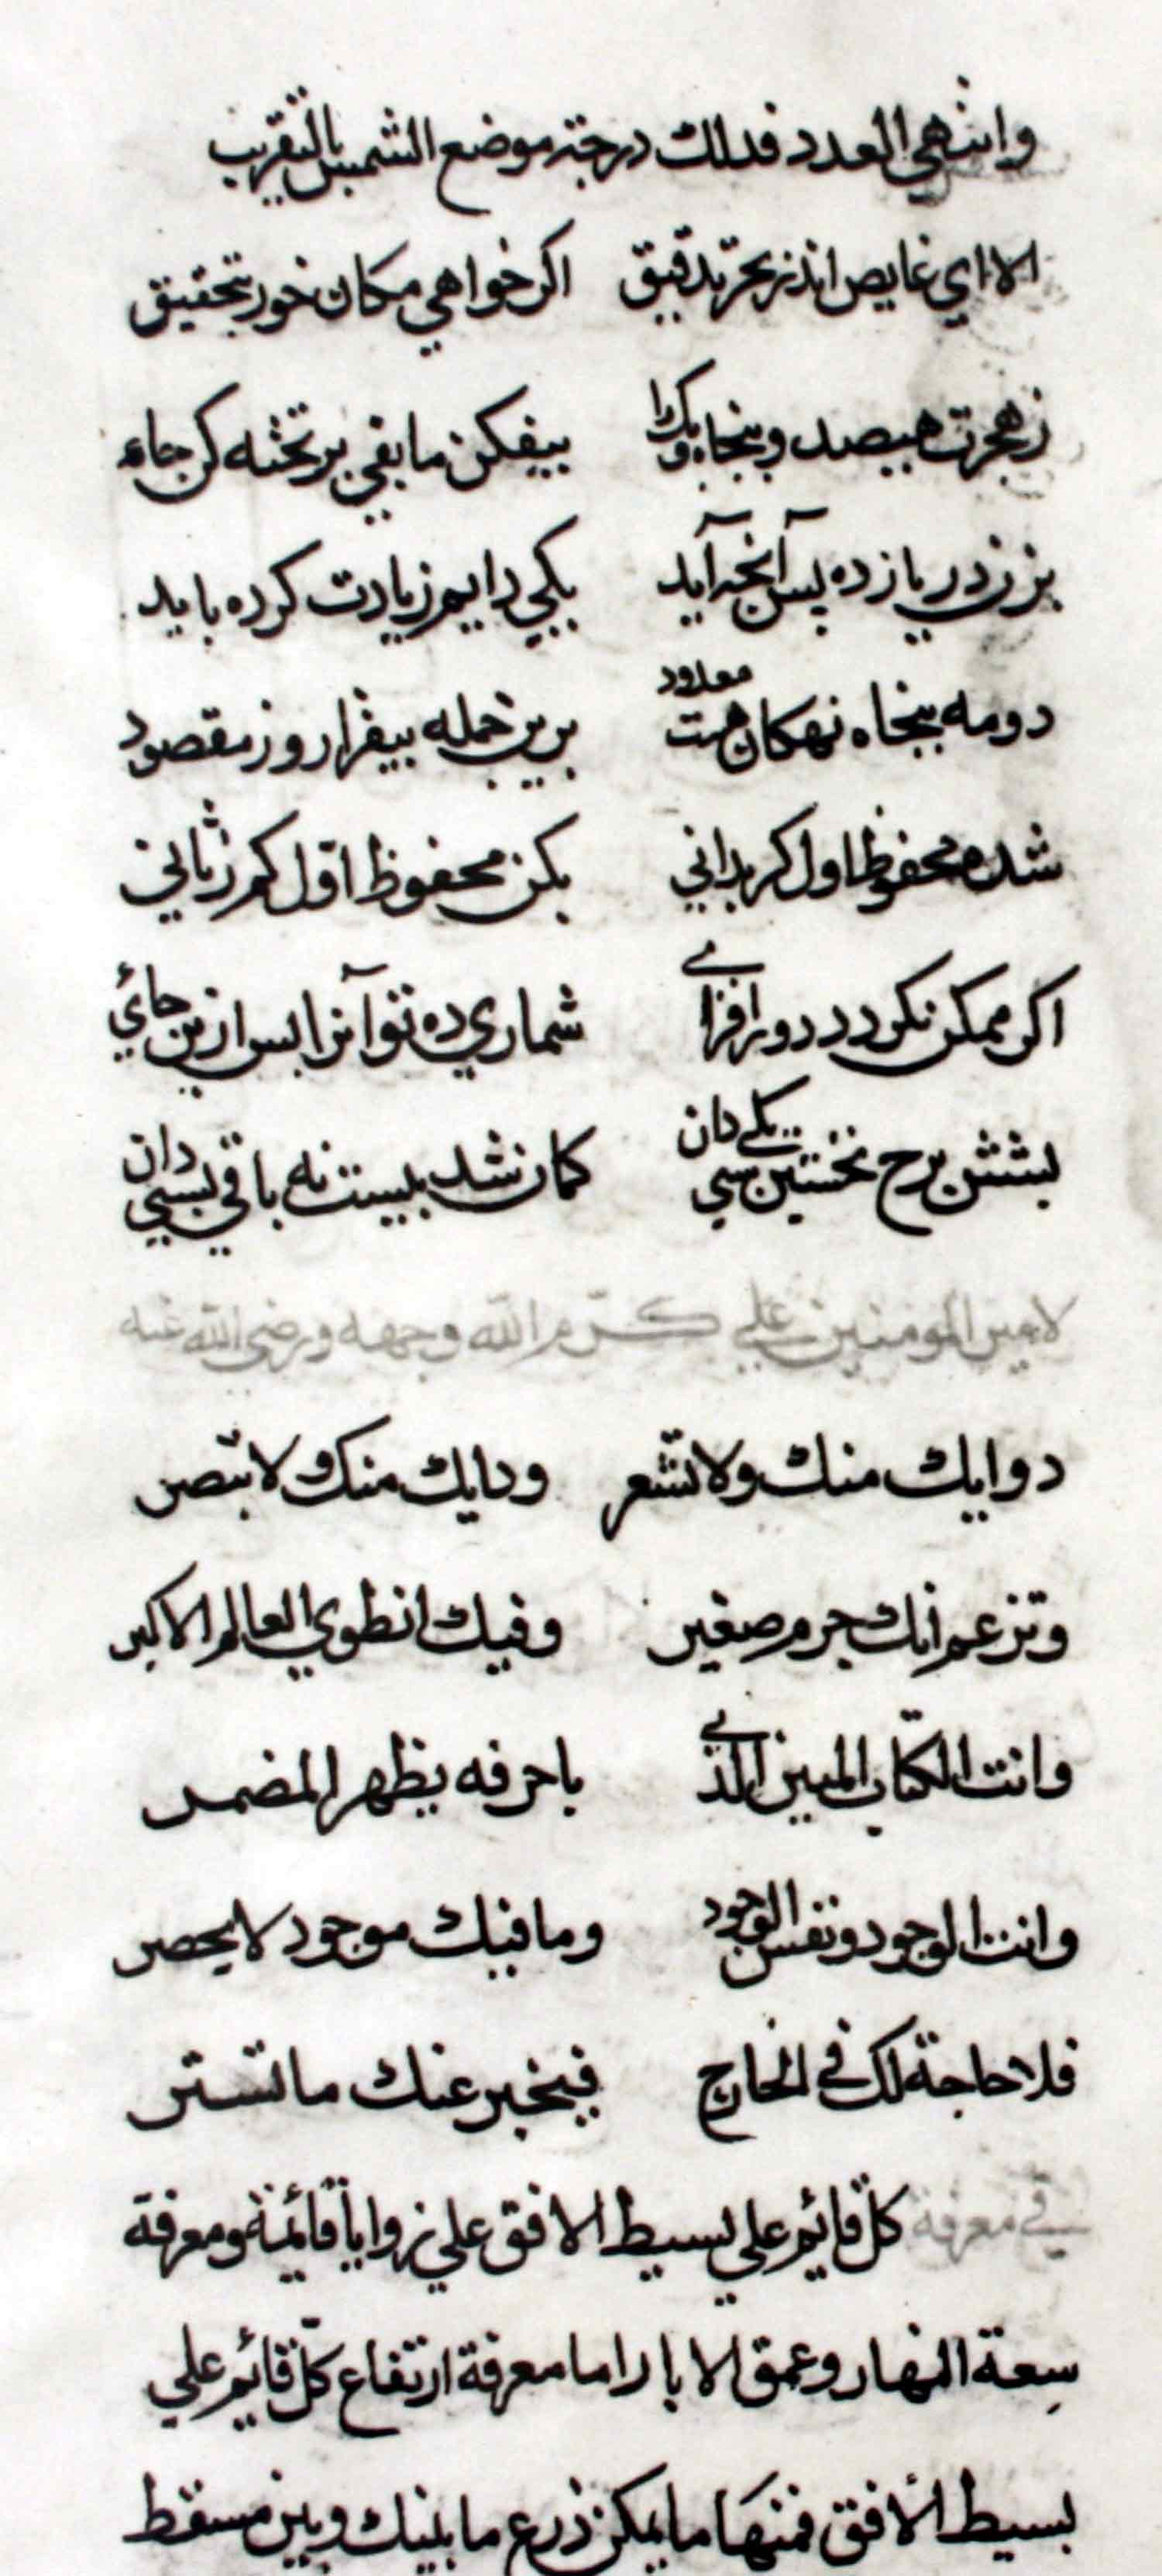 وانتهي العدد فدلك درجته موضع الشمس بالتقريب
الا اي غايص اندر بحر تدقيق اكر خواهي مكان خور بتحقيق
زهجرت هيصد و پنجاه ويكرا بيفكن ما بقي بر تخته كن جاء
بزن در يازده پس آنچه آيد يكي دايم زيادت كرده بايد
دومه پنجاه نهكان هست معدود برين جمله بيفزا روز مقصود
شده محفوظ اول كر بداني بكن محفوظ اول كم ز ثاني
اكر ممكن نكردد دور افزاي شماري ده تو آنرا پس ازين جائي
بشش برج نخستين سي يكي دان كمان شد بيست نه باقي بسي دان
لامير المومنين علي كرم الله وجهه ورضي الله عنه
دوايك منك ولا تشعر ودايك منك ولا تبصر
وتزعم انك جرم صغير وفيك انطوي العالم الاكبر
وانت الكتاب المبين الذي باحرفه يظهر المضمر
وانت الوجود ونفس الوجود وما فيك موجود لا يحصر
فلا حاجة لك في الخارج فيخبر عنك ما تستتر
في معرفة كل قائم علي بسيط الافق علي زوايا قائمة ومعرفة
سعة النهار وعمق الابار اما معرفة ارتفاع كل قائم علي
بسيط الافق فمنها ما يمكن ذرع ما بينك وبين مسقط